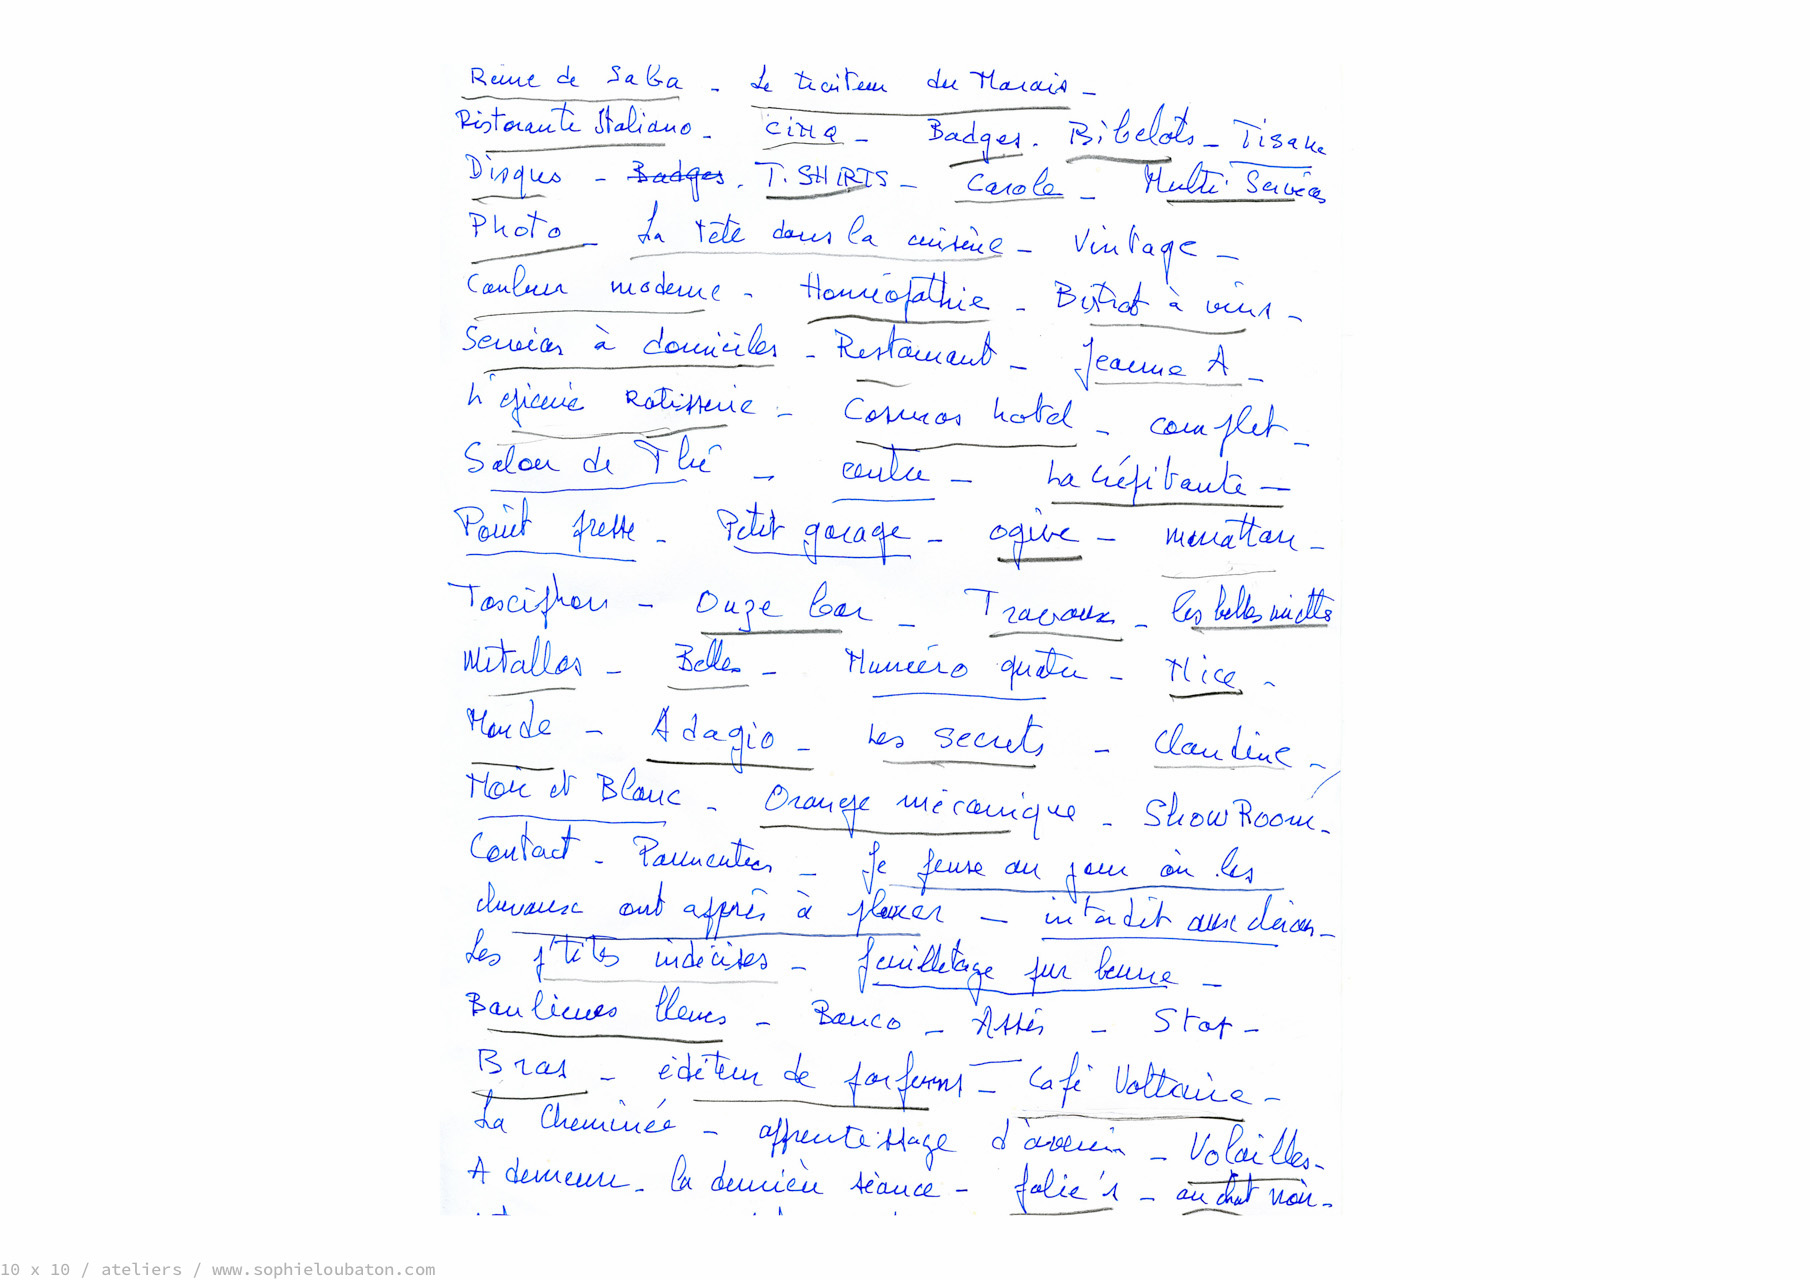 Reine de Saba - Le traiteur du Marais -
Ristorante Italiano - CINQ - Badges. Bibelots - Tisane
Disques - Badges. T.SHIRTS - Carole - Multi Services
Photo - La tête dans la cuisine - Vintage -
Couleur moderne - Homéopathie - Bistrot à vins -
Services à domiciles - Restaurant - Jeanne A -
L'épicerie Rotisserie - Cosmos hotel - complet -
Salon de Thé - centre - La crépitante -
Point presse - Petit garage - ogive - manattan -
Taxiphon - Onze bar - Travaux - les belles miettes
Métallos - Belles - Numéro quatre - Nice -
Monde - Adagio - Les secrets - Claudine -
Noir et Blanc - Orange mécanique - ShowRoom -
Contact - Parmentier - Je pense au jour où les
chevaux ont appris à pleurer - interdit aux
Les p'tites indécises - feuilletage pur beurre -
Banlieues bleues - Banco - Assès - Stop -
Bras - éditeur de parfums - Café Voltaire -
La Cheminée - apprentissage d'avenir - Volailles -
A demeure - la dernière séance - folie's - au chat noir -
10 x 10 / ateliers / www.sophieloubaton.com